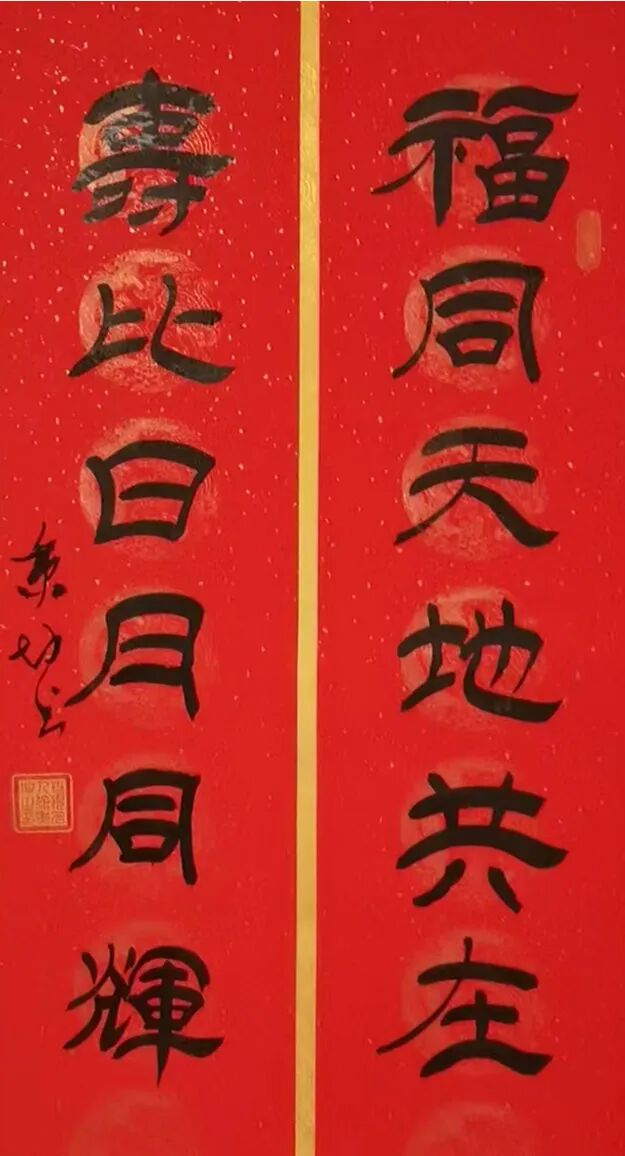 福同天地共在
壽比日月同輝